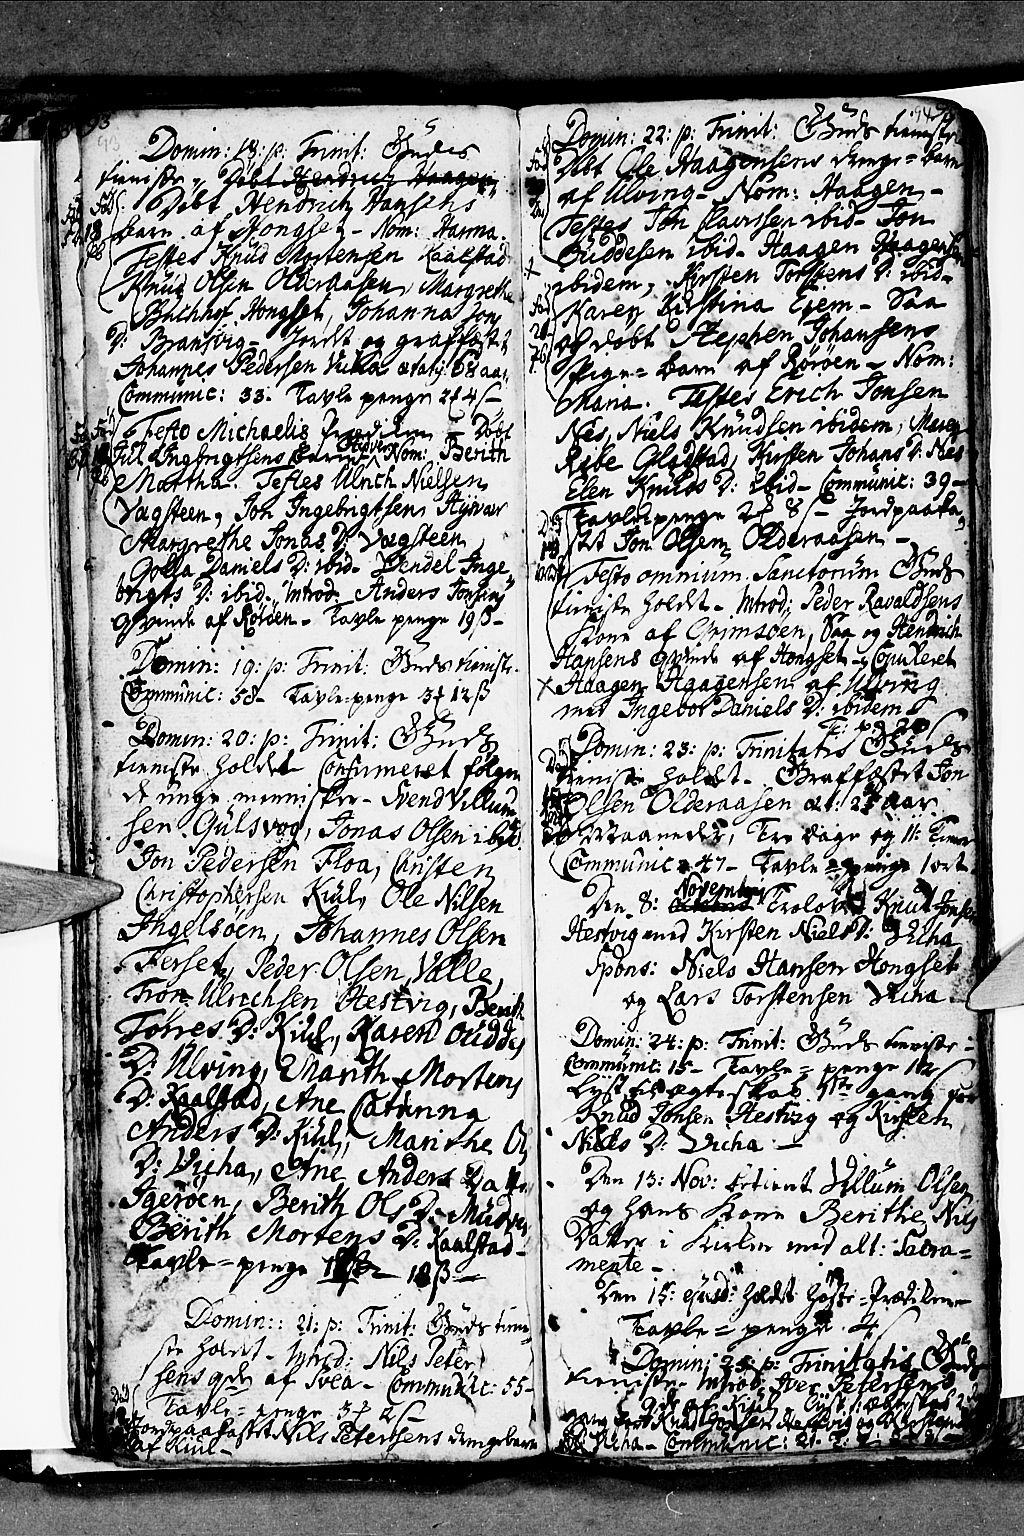 93
Domin: 18: p: Trinit: Guds
tieniste, Døbt Hendrich Haagen
Døbt Hendrich Hansens
barn af Hongset - Nom: Hanna.
Testes Knud Mortensen Kaalstad
Knud Olsen Olderaasen, Margrethe
Buchhof Hongset, Johanna Jon
D: Bransvig - Jordt og graffæst
Johannes Pedersen Vicha ætat: 68 aar
Communic: 33. Tavle penge 2 4
Festo Michaelis Prædiken - Døbt
Jul Ingbrigtsens barn Nom: Berith
Martha. Testes Ulrich Nielsen
Vægsteen, Jon Ingebrigtsen
Margrethe Jonas D: Vægsteen
Golla Daniels D: ibid - Vendel Inge
brigts D: ibid. Introd: Anders Jonsens
qvinde af Rørøen - Tavle penge 19 β -
Domin: 19: p: Trinit: Guds tieniste.
Communic: 58 - Tavle penge 3 12 β
Domin: 20: p: Trinit: Guds
tieniste holdet Confirmeret følgen
de unge mennisker - Svend Villum
sen Gulsvog, Jonas Olsen ibid
Jon Pedersen Floa, Christen
Christophersen Kiul, Ole Nilsen
Ingelsøen, Johannes Olsen
Ferset, Peder Olsen Valle,
Tron Ulrichsen Hestvig, Berith
Torres D: Kiul, Karen Guddes
D: Ulving, Marith Mortens
D: Kaalstad, Ane Catrinna
Anders D: Kiul, Marithe Ol
D: Vicha, Ane Anders Datter
Igerøen, Berith Ols D:
Berith Mortens D: Kaalstad -
Tavle = penge 18 β -
Domin: 21: p: Trinit: Guds tieni
ste holdt - Introd: Nils Peter
sens qde af Svea - Communic: 55 -
Tavle = penge 3 2
Jordpaakastet Nils Petersens drengebarn
af Kiul -
94
Domin: 22: p: Trinit: Guds tieniste
Døbt Ole Haagensens drenge = barn
af Ulving - Nom: Haagen -
Testes Jon ibid - Jon
Guddesen ibid - Haagen Haagensen
ibidem, Kirsten Torstens D: ibid -
Karen Kirstina Egem - Saa
og døbt Stephen Johansens
pige = barn af Rørøen - Nom:
Maria. Testes Erich Jonsen
Nes, Niels Knudsen ibidem, Maren
Røbe Gladstad, Kirsten Johans D: Nes
Elen Knuds D: ibid - Communic: 39 -
Tavle penge 2 8 - Jordpaaka
stet Jon Olsen Olderaasen -
Festo omnium Sanctorum Guds
tieniste holdt - Introd: Peder Ravaldsens
kone af Grimsøen, Saa og Hendrich
Hansens qvinde af Hongset - Copuleret
Haagen Haagensen af Ulving
med Ingebor Daniels D: ibidem
Domin: 23: p: Trinitatis Guds
tieniste holdt - Graffæstet Jon
Olsen Olderaasen æt: 25 aar
Maaneder, Tre dage og 11: timer
Communic: 47 - Tavle = penge 1 ort -
Den 8: November Trolovet Knud Jonsen
Hestvig med Kirsten Niels D: Vicha
Spons: Niels Hansen Hongset
og Lars Torstensen Vicha
Domin: 24: p: Trinit: Guds tieniste =
Communic: 15 - Tavle = penge
Lyst til ægteskab 1ste gang for
Knud Jonsen Hestvig og Kirsten
Niels D: Vicha -
Den 13: Nov: betient Villum Olsen
og hans kone Berithe Nils
Datter i kirken med alt: Sacra =
mente -
Den 15: ejusd: holdt Høste = Prædiken
Tavle = penge 4
Domin: 25: p: Trinitatis Guds
tieniste - Introd: Iver Petersens
qde af Kiul, Lyst til ægteskab 2den
gang for Knud Jonsen Hestvig og Kirsten
Vicha - Communic: 21.